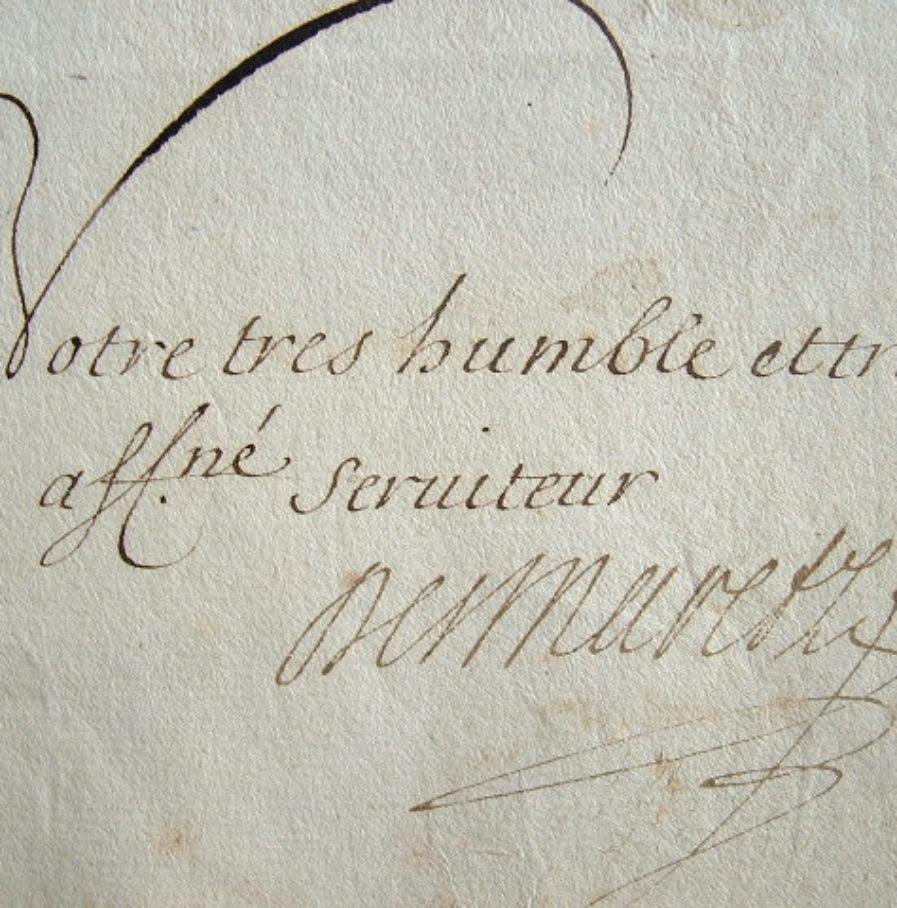 Votre tres humble et tr
aff.né seruiteur
Desmaretz